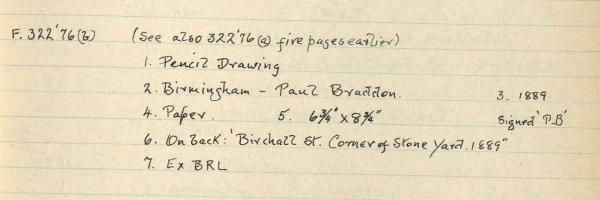 F. 322'76(b) (See also 322'76(a) five pages earlier)
1. Pencil Drawing
2. Birmingham - Paul Braddon. 3. 1889
4. Paper. 5. 6¾" x 8¾" Signed 'P.B'
6. On back: 'Birchall St. Corner of Stone Yard. 1889"
7. Ex BRL